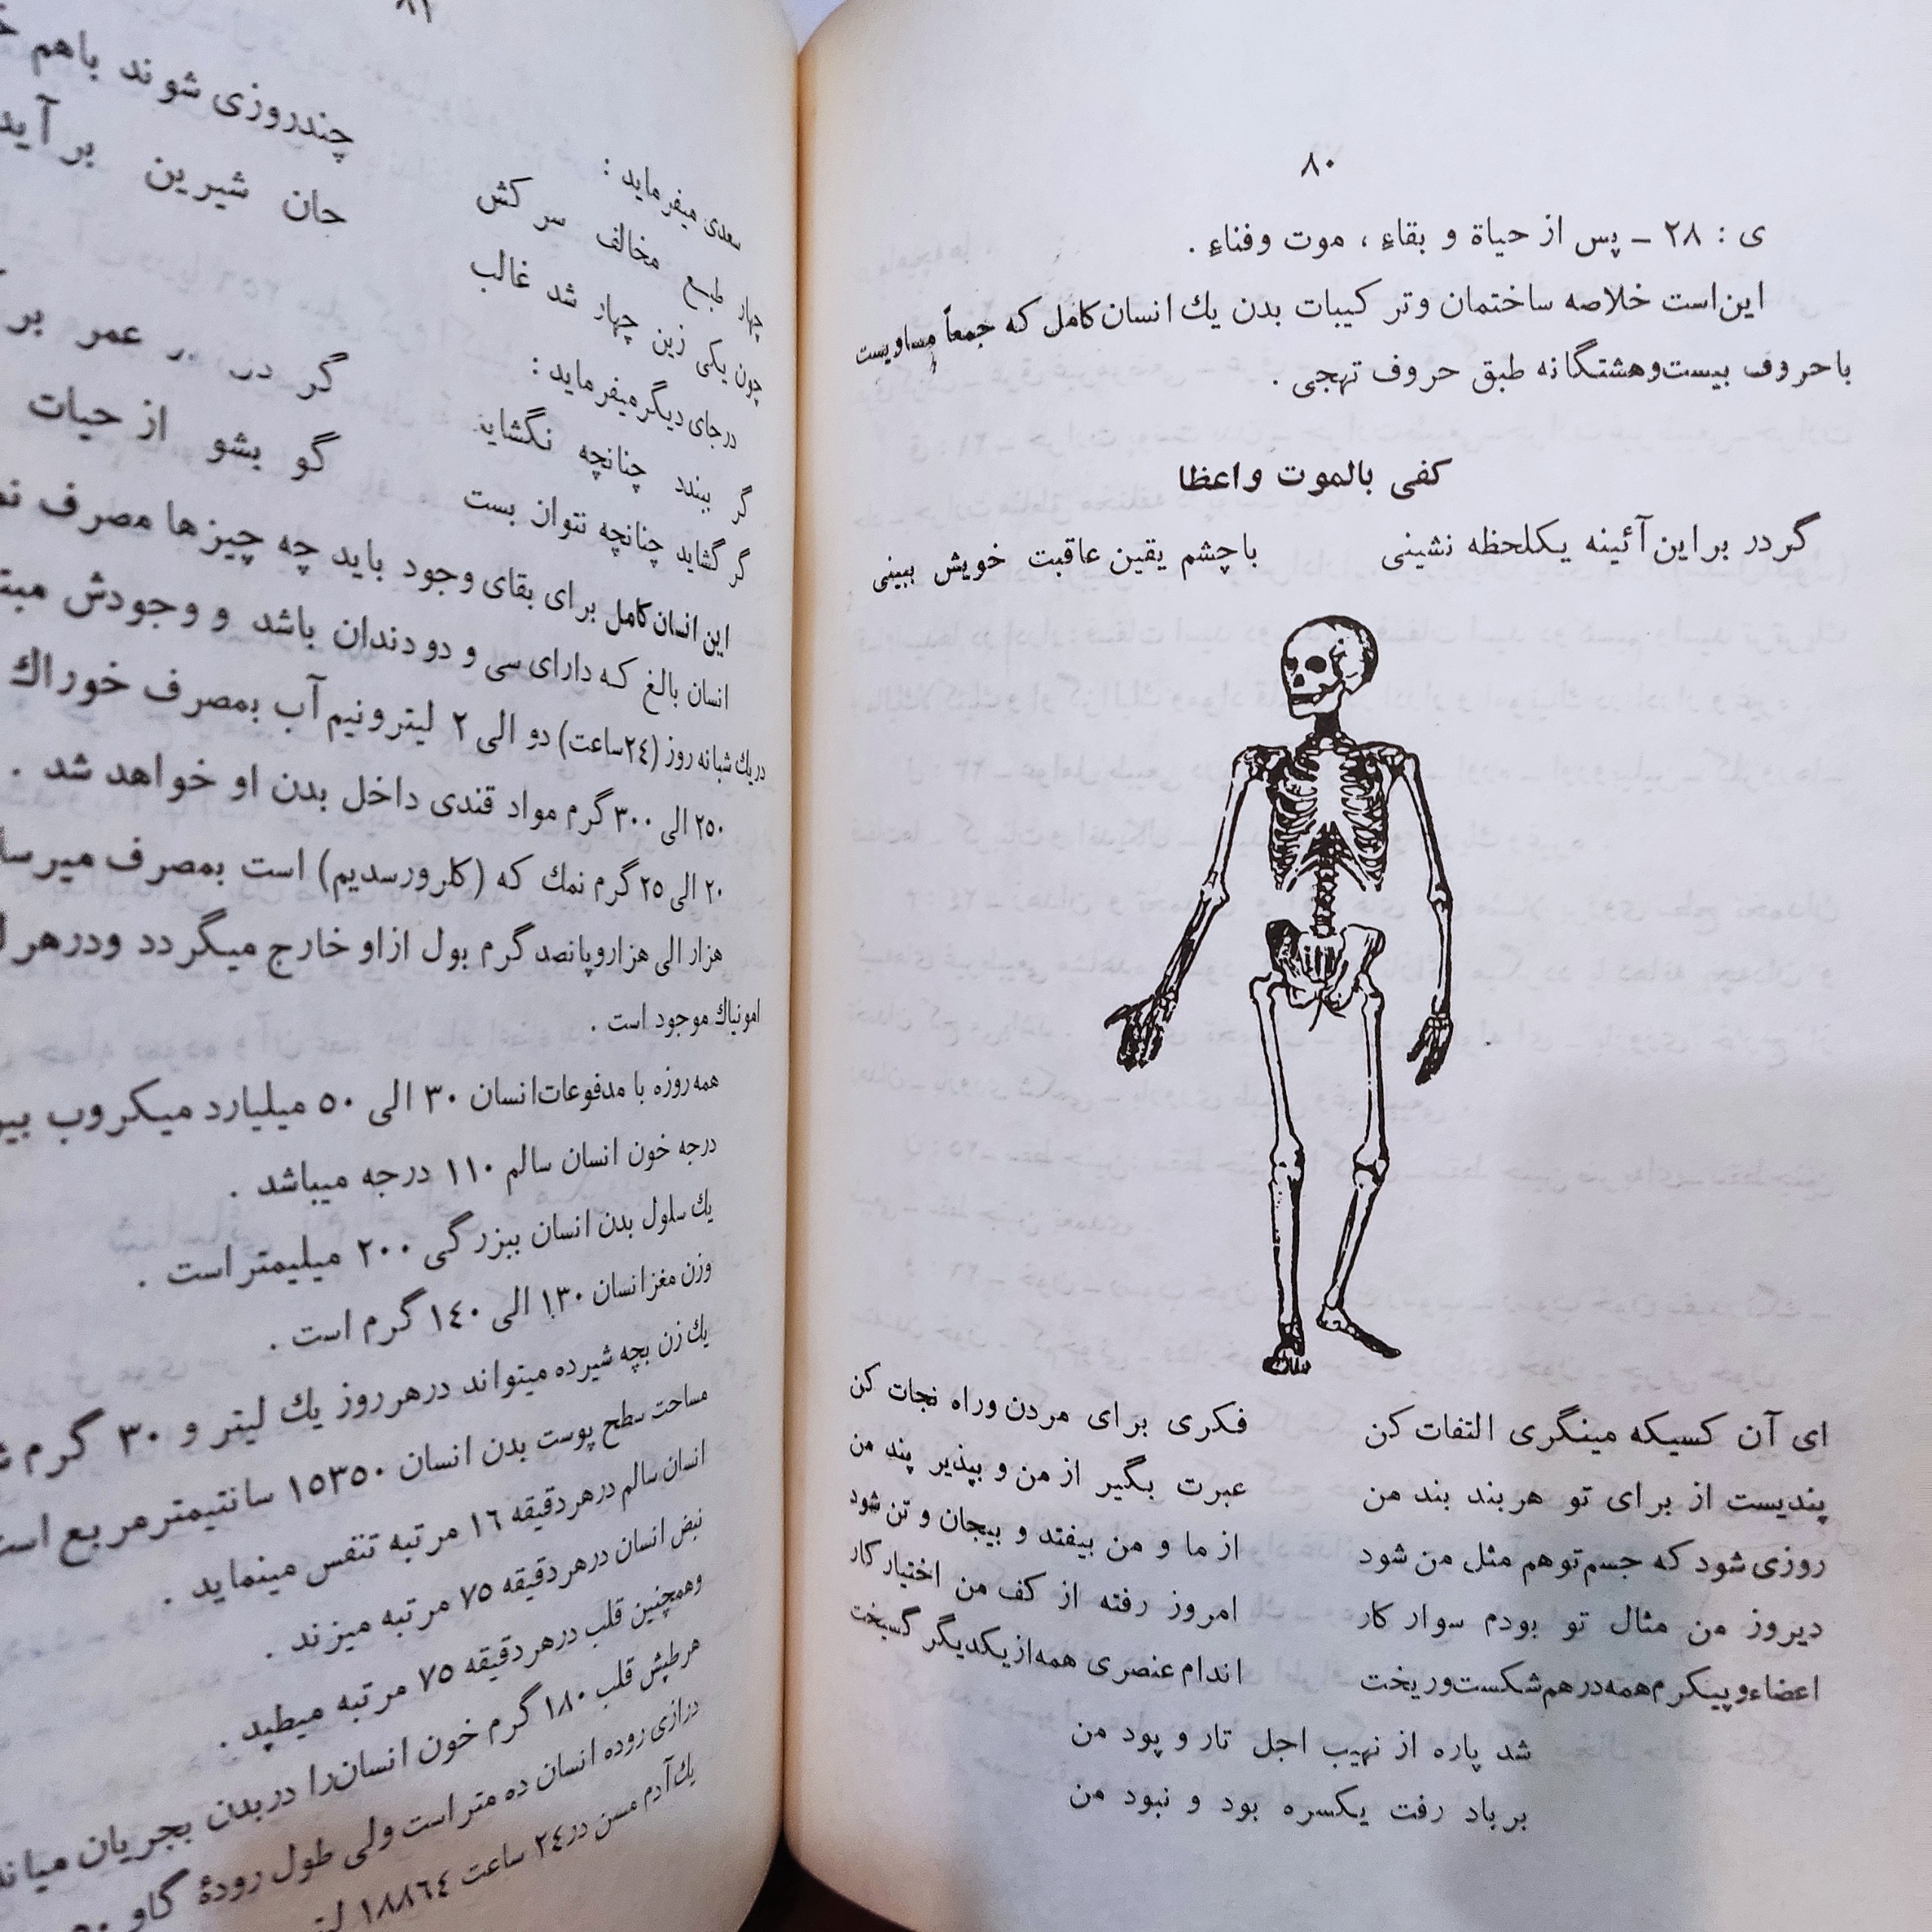 ٨٠
ی : ٢٨ - پس از حیاة و بقاءِ ، موت وفناءِ .
این‌است خلاصه ساختمان وترکیبات بدن یك انسان‌کامل که جمعاً مساویست
باحروف بیست‌وهشتگانه طبق حروف تهجی .
کفی بالموت واعظا
گردر براین‌آئینه یکلحظه نشینی باچشم یقین عاقبت خویش ببینی
ای آن کسیکه مینگری التفات کن فکری برای مردن وراه نجات کن
پندیست از برای تو هربند بند من عبرت بگیر از من و بپذیر پند من
روزی‌شود که جسم‌توهم مثل من شود از ما و من بیفتد و بیجان و تن شود
دیروز من مثال تو بودم سوار کار امروز رفته از کف من اختیار کار
اعضاءوپیکرم‌همه‌درهم‌شکست‌وریخت اندام‌عنصری همه‌ازیکدیگر گسیخت
شد پاره از نهیب اجل تار و پود من
برباد رفت یکسره بود و نبود من
٨١
سعدی میفرماید :
چهار طبع مخالف سرکش چندروزی شوند باهم
چون یکی زین چهار شد غالب جان شیرین برآید
درجای دیگرمیفرماید :
گر ببندد چنانچه نگشاید گر عمر بر
گر گشاید چنانچه نتوان بست گو بشو از حیات
این انسان‌کامل برای بقای وجود باید چه چیزها مصرف
انسان بالغ که دارای سی و دو دندان باشد و وجودش
دریك شبانه روز (٢٤ساعت) دو الی ٢ لیترونیم آب بمصرف خوراك
٢٥٠ الی ٣٠٠ گرم مواد قندی داخل بدن او خواهد شد .
٢٠ الی ٢٥ گرم نمك که (کلرورسدیم) است بمصرف
هزار الی هزاروپانصد گرم بول ازاو خارج میگردد ودرهر
امونیاك موجود است .
همه‌روزه با مدفوعات‌انسان ٣٠ الی ٥٠ میلیارد میکروب
درجه خون انسان سالم ١١٠ درجه میباشد .
یك سلول بدن انسان ببزرگی ٢٠٠ میلیمتراست .
وزن مغزانسان ١٣٠ الی ١٤٠ گرم است .
یك زن بچه شیرده میتواند درهرروز یك لیتر و ٣٠ گرم
مساحت سطح پوست بدن انسان ١٥٣٥٠ سانتیمترمربع است
انسان سالم درهردقیقه ١٦ مرتبه تنفس مینماید .
نبض انسان درهردقیقه ٧٥ مرتبه میزند .
وهمچنین قلب درهردقیقه ٧٥ مرتبه میطپد .
هرطپش قلب ١٨٠ گرم خون انسان‌را دربدن بجریان
درازی روده انسان ده متراست ولی طول رودهٔ گاو
یك‌آدم مسن در٢٤ ساعت ١٨٨٦٤